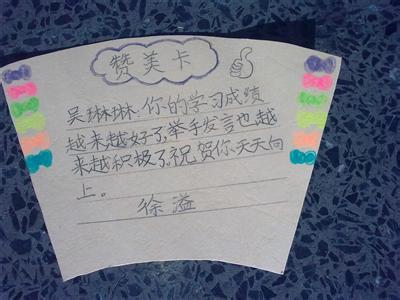 赞美卡
吴琳琳:你的学习成绩
越来越好了,举手发言也越
来越积极了,祝贺你,天天向
上。
徐溢